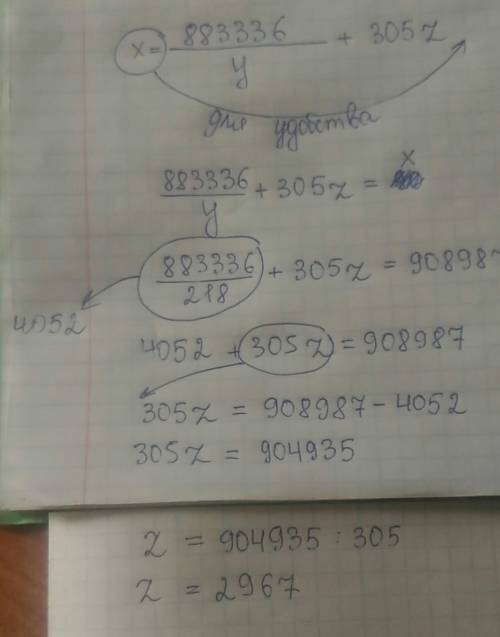 x = 883336/y + 305z
для удобства
883336/y + 305z = x
883336/218 + 305z = 908987
4052
4052 + 305z = 908987
305z = 908987 - 4052
305z = 904935
z = 904935 : 305
z = 2967